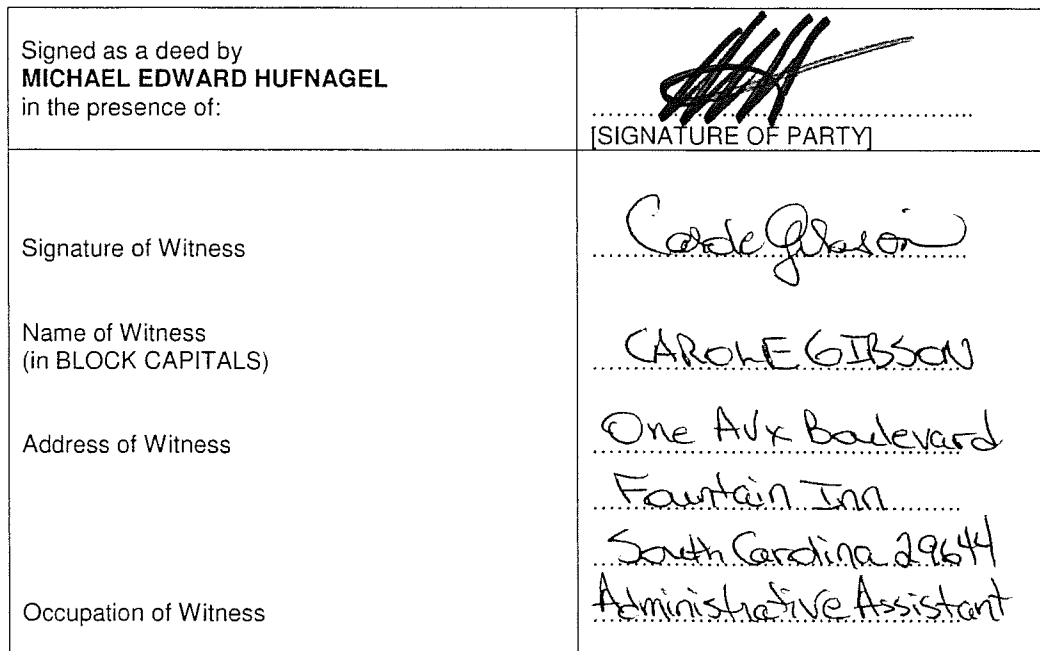 Signed as a deed by
MICHAEL EDWARD HUFNAGEL
in the presence of:
[SIGNATURE OF PARTY]
Signature of Witness
Carole Gibson
Name of Witness
(in BLOCK CAPITALS)
CAROLE GIBSON
Address of Witness
One AVX Boulevard
Fountain Inn
South Carolina 29644
Occupation of Witness
Administrative Assistant